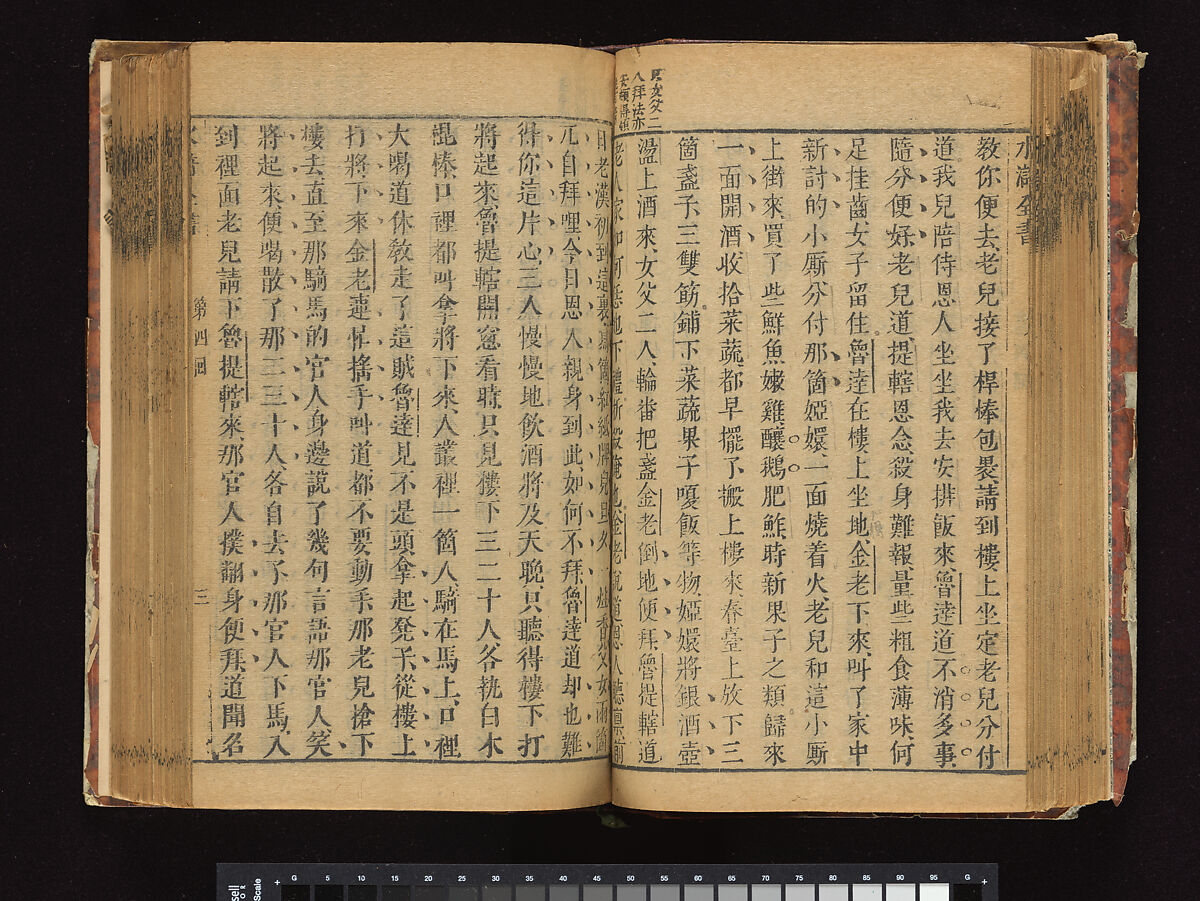 水滸全書
教你便去老兒接了桿棒包裹請到樓上坐定老兒分付
道我兒陪侍恩人坐坐我去安排飯來魯達道不消多事
隨分便好老兒道提轄恩念殺身難報量些粗食薄味何
足挂齒女子留住魯達在樓上坐地金老下來叫了家中
新討的小厮分付那箇婭嬛一面燒着火老兒和這小厮
上街來買了些鮮魚嫩雞釀鵝肥鮓時新果子之類歸來
一面開酒收拾菜蔬都早擺了搬上樓來春臺上放下三
箇盞子三雙筯鋪下菜蔬果子嗄飯等物婭嬛將銀酒壺
盪上酒來女父二人輪番把盞金老倒地便拜魯提轄道
老人家如何恁地下禮折殺俺也金老說道恩人聽稟前
見女父二
人拜法亦
日老漢初到這裏寫箇紅紙牌兒旦夕一炷香父女兩箇
兀自拜哩今日恩人親身到此如何不拜魯達道却也難
得你這片心三人慢慢地飲酒將及天晚只聽得樓下打
將起來魯提轄開窻看時只見樓下三二十人各執白木
棍棒口裡都叫拿將下來人叢裡一箇人騎在馬上口裡
大喝道休教走了這賊魯達見不是頭拿起凳子從樓上
打將下來金老連忙搖手叫道都不要動手那老兒搶下
樓去直至那騎馬的官人身邊說了幾句言語那官人笑
將起來便喝散了那二三十人各自去了那官人下馬入
到裡面老兒請下魯提轄來那官人撲翻身便拜道聞名
第四回
三
G 5 10 20 30 40 50 60 70 80 90 95 G
Scale